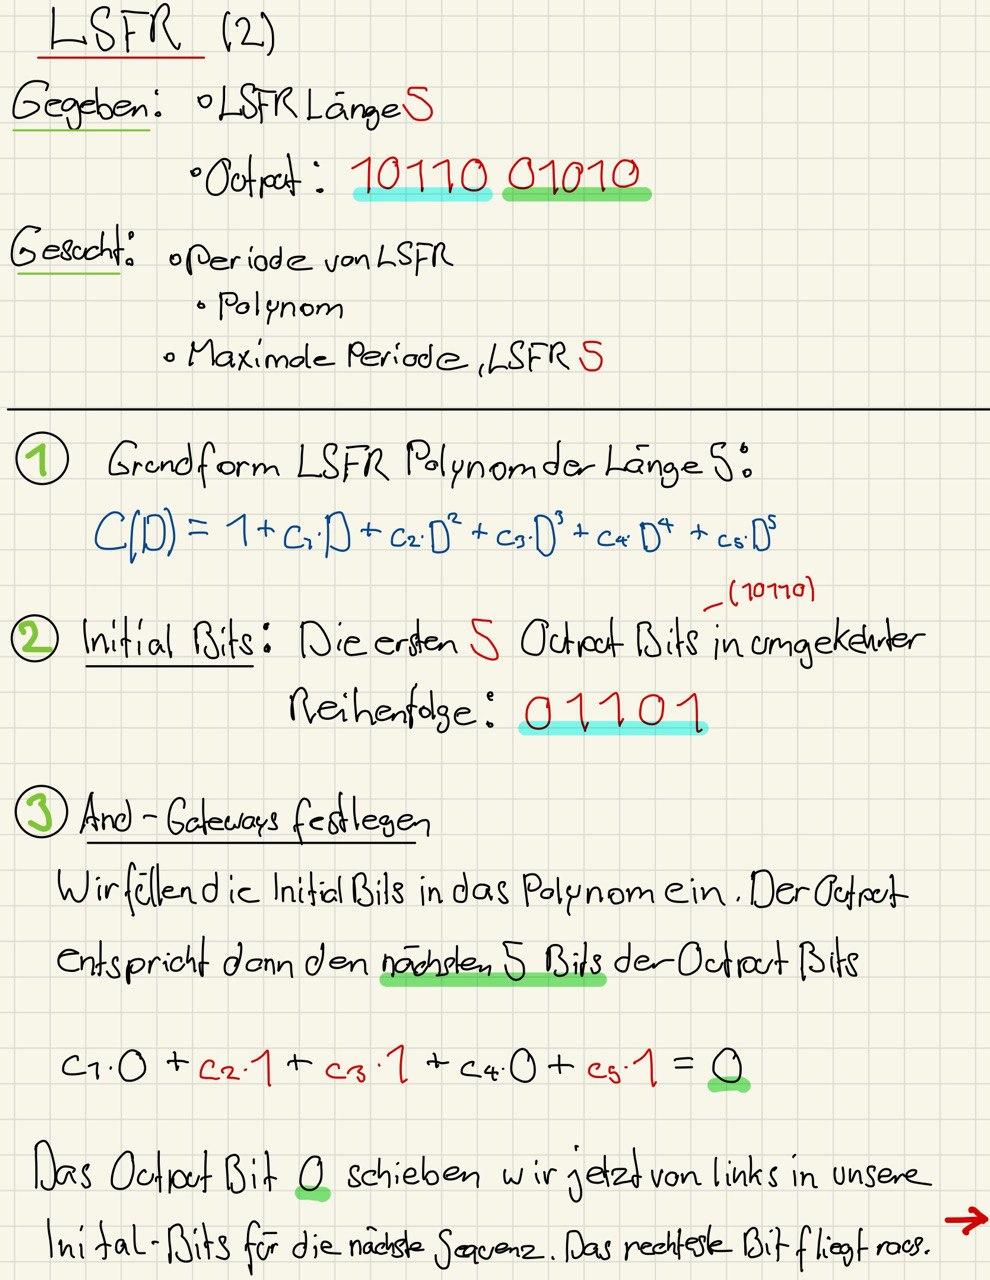 LSFR (2)
Gegeben: ° LSFR Länge 5
° Output: 10110 01010
Gesucht: ° Periode von LSFR
° Polynom
° Maximale Periode, LSFR 5
1 Grundform LSFR Polynom der Länge 5:
C(D) = 1 + c₁·D + c₂·D² + c₃·D³ + c₄·D⁴ + c₅·D⁵
(10110)
2 Initial Bits: Die ersten 5 Output Bits in umgekehrter
Reihenfolge: 01101
3 And-Gateways festlegen
Wir füllen die Initial Bits in das Polynom ein. Der Output
entspricht dann den nächsten 5 Bits der Output Bits
c₁·0 + c₂·1 + c₃·1 + c₄·0 + c₅·1 = 0
Das Output Bit 0 schieben wir jetzt von links in unsere
Inital-Bits für die nächste Sequenz. Das rechteste Bit fliegt raus. →